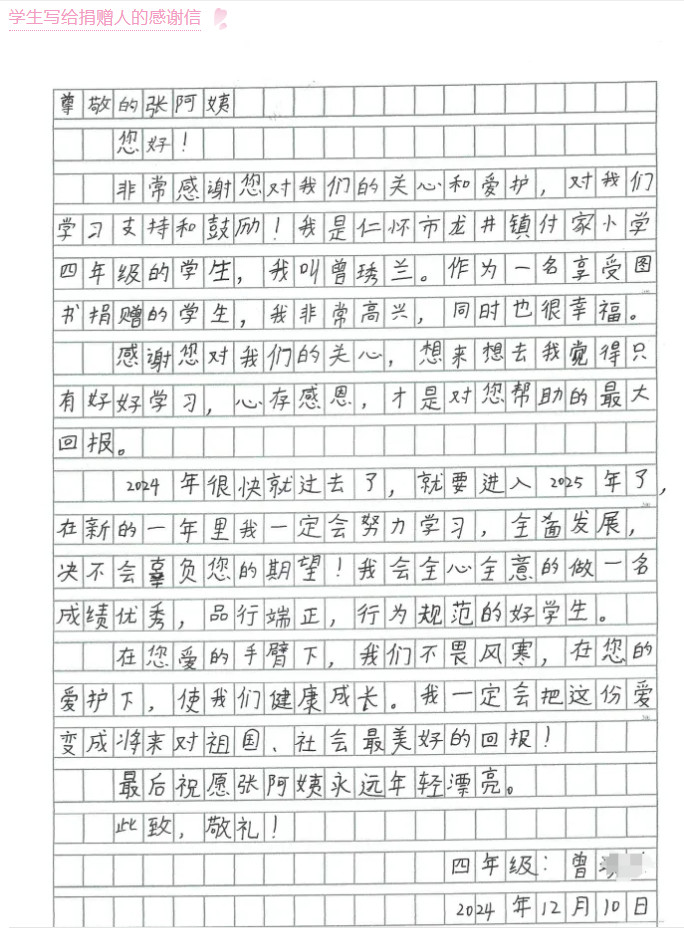 学生写给捐赠人的感谢信
尊敬的张阿姨
您好！
非常感谢您对我们的关心和爱护，对我们
学习支持和鼓励！我是仁怀市龙井镇付家小学
四年级的学生，我叫曾琇兰。作为一名享受图
书捐赠的学生，我非常高兴，同时也很幸福。
感谢您对我们的关心，想来想去我觉得只
有好好学习，心存感恩，才是对您帮助的最大
回报。
2024年很快就过去了，就要进入2025年了，
在新的一年里我一定会努力学习，全面发展，
决不会辜负您的期望！我会全心全意的做一名
成绩优秀，品行端正，行为规范的好学生。
在您爱的手臂下，我们不畏风寒，在您的
爱护下，使我们健康成长。我一定会把这份爱
变成将来对祖国、社会最美好的回报！
最后祝愿张阿姨永远年轻漂亮。
此致，敬礼！
四年级：曾
2024年12月10日